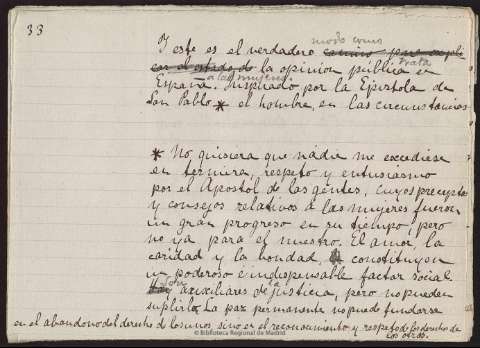 33
modo como
Y este es el verdadero camino para expli
car el estado de la opinion pública en trata
España. a las mujeres. Inspirado por la Epístola de
San Pablo * el hombre, en las circunstancias
* No quisiera que nadie me excediese
en ternura, respeto y entusiasmo
por el Apostol de las gentes, cuyos preceptos
y consejos relativos á las mujeres fueron
un gran progreso en su tiempo, pero
no ya para el nuestro. El amor, la
caridad y la bondad, constituyen
un poderoso é indispensable factor social
son auxiliares de la justicia, pero no pueden
suplirla. La paz permanente no puede fundarse
en el abandono del derecho de los unos, sino en el reconocimiento y respeto de los derechos de
los otros.
© Biblioteca Regional de Madrid